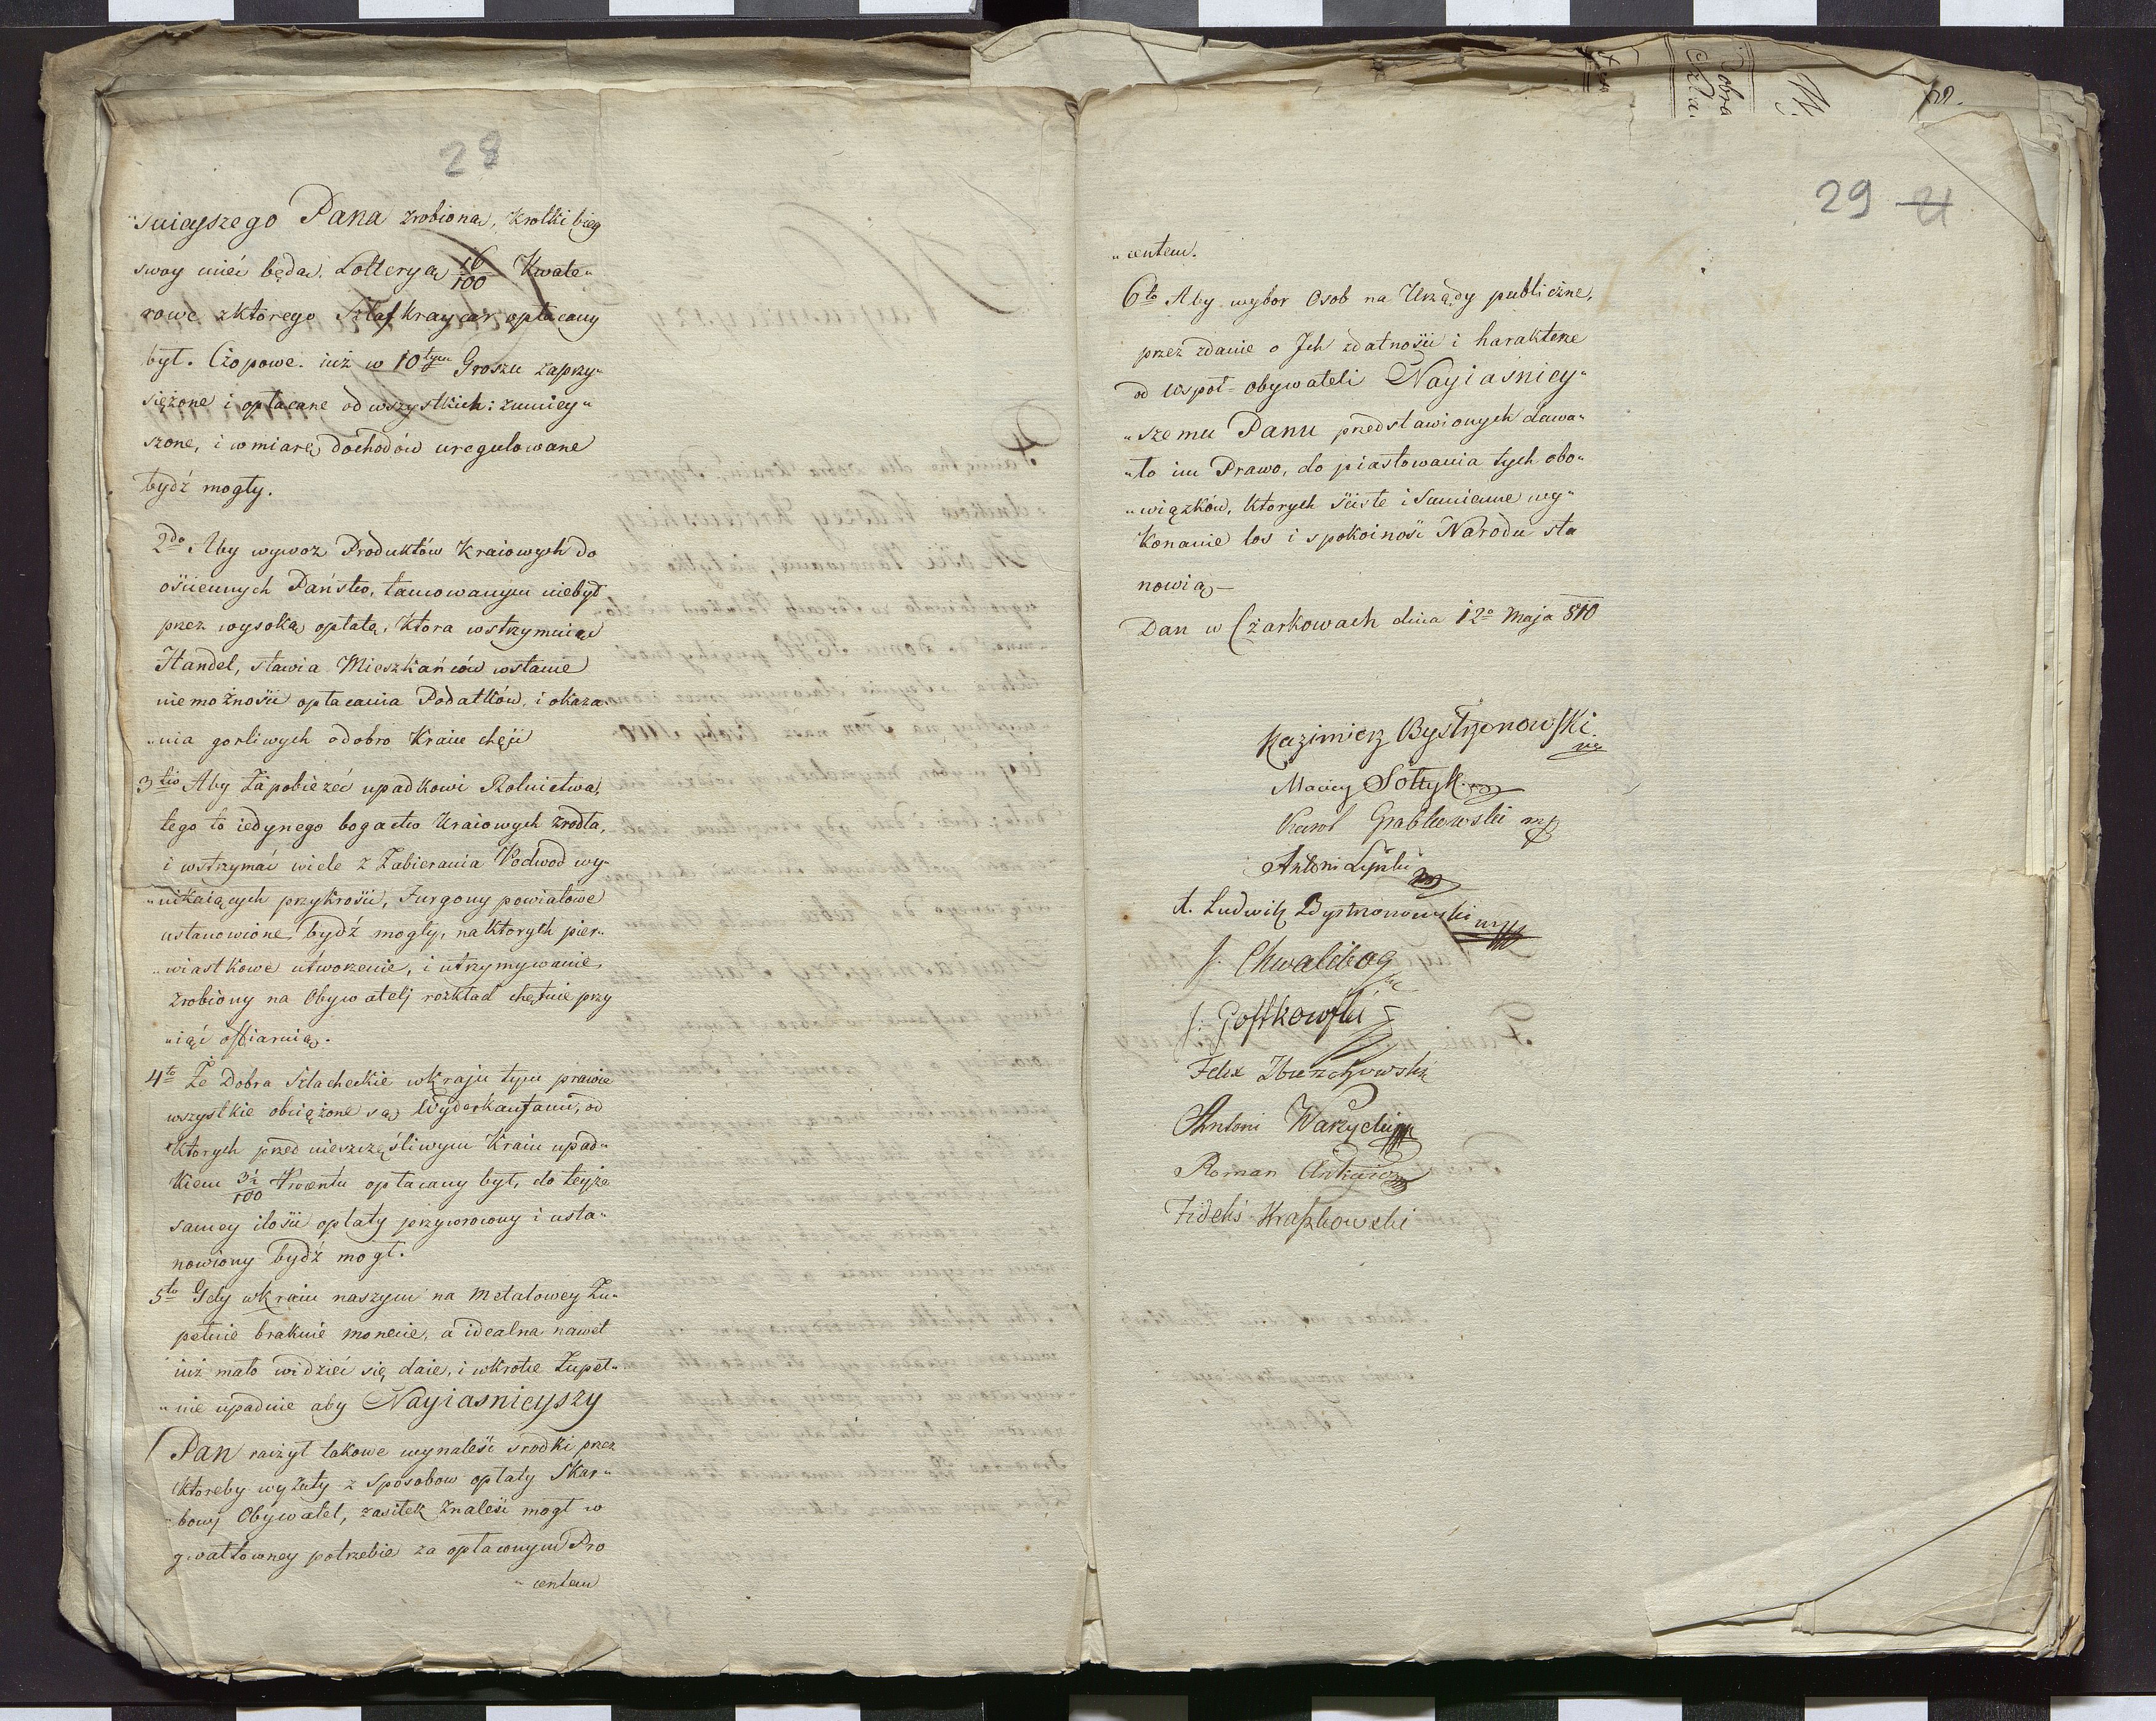 28
„śnieyszego Pana zrobiona, krotki bieg
swoy mieć będą. Lotterya 10/100 Kwate„
rowe z którego Sztaf kraycar opłacany
był. Czopowe. iuż w 10tym Groszu zaprzy„
siężone i opłacane od wszystkich: zmniey„
szone, i w miarę dochodów uregulowane
bydź mogły.
2do Aby wywoz Produktów Kraiowych do
ościennych Państw, tamowanym niebył
przez wysoką opłatę, ktora wstrzymuiąc
Handel, stawia Mieszkańców wstanie
niemożności opłacania Podatków, i okaza„
„nia gorliwych o dobro Kraiu chęci
3tio Aby Zapobieżeć upadkowi Rolnictwa,
tego to iedynego bogactw Kraiowych zrodła,
i wstrzymać wiele z Zabierania Podwod wy„
„nikaiących przykrości, Furgony powiatowe
ustanowione bydź mogły, na ktorych pier„
„wiastkowe utworzenie, i utrzymywanie,
zrobiony na Obywateli rozkład chętnie przy
„iąć offiaruią.
4to Że Dobra Szlacheckie w kraju tym prawie
wszystkie obciążone są Wyderkaufami, od
ktorych przed nieszczęśliwym Kraiu upad„
kiem 3½/100 Procentu opłacany był, do teyże
samey ilości opłaty przywrocony i usta„
nowiony bydź mogł.
5to Gdy w kraiu naszym na metalowey Zu„
pełnie braknie monecie, a idealna nawet
iuż mało widzieć się daie, i wkrotce Zupeł„
„nie upadnie aby Nayiasnieyszy
Pan raczył takowe wynaleść srodki przez
ktoreby wyzuty z sposobow opłaty Skar„
„bowy Obywatel, zasiłek Znaleść mogł w
gwałtowney potrzebie za opłaconym Pro
„centem
29 21
„centem.
6to Aby wybor Osob na Urzędy publiczne,
przez zdanie o Ich zdatności i harakterze
od Wspoł-obywateli Nayiasniey„
„szemu Panu przedstawionych dawa„
„ło im Prawo, do piastowania tych obo„
„wiązków, ktorych ściste i Sumienne wy„
konanie los i spokoiność Narodu sta
nowią —
Dan w Czarkowach dnia 12o Maja 810
Kazimierz Bystrzonowski
Maciey Sołtyk mp
Karol Grabkowski mp
Antoni Lipski mp
A. Ludwik Bystrzonowski mp
J. Chwalibog
J. Gostkowski
Felix
Antoni Warzycki
Roman
Fidelis Krapkowski
Dobra